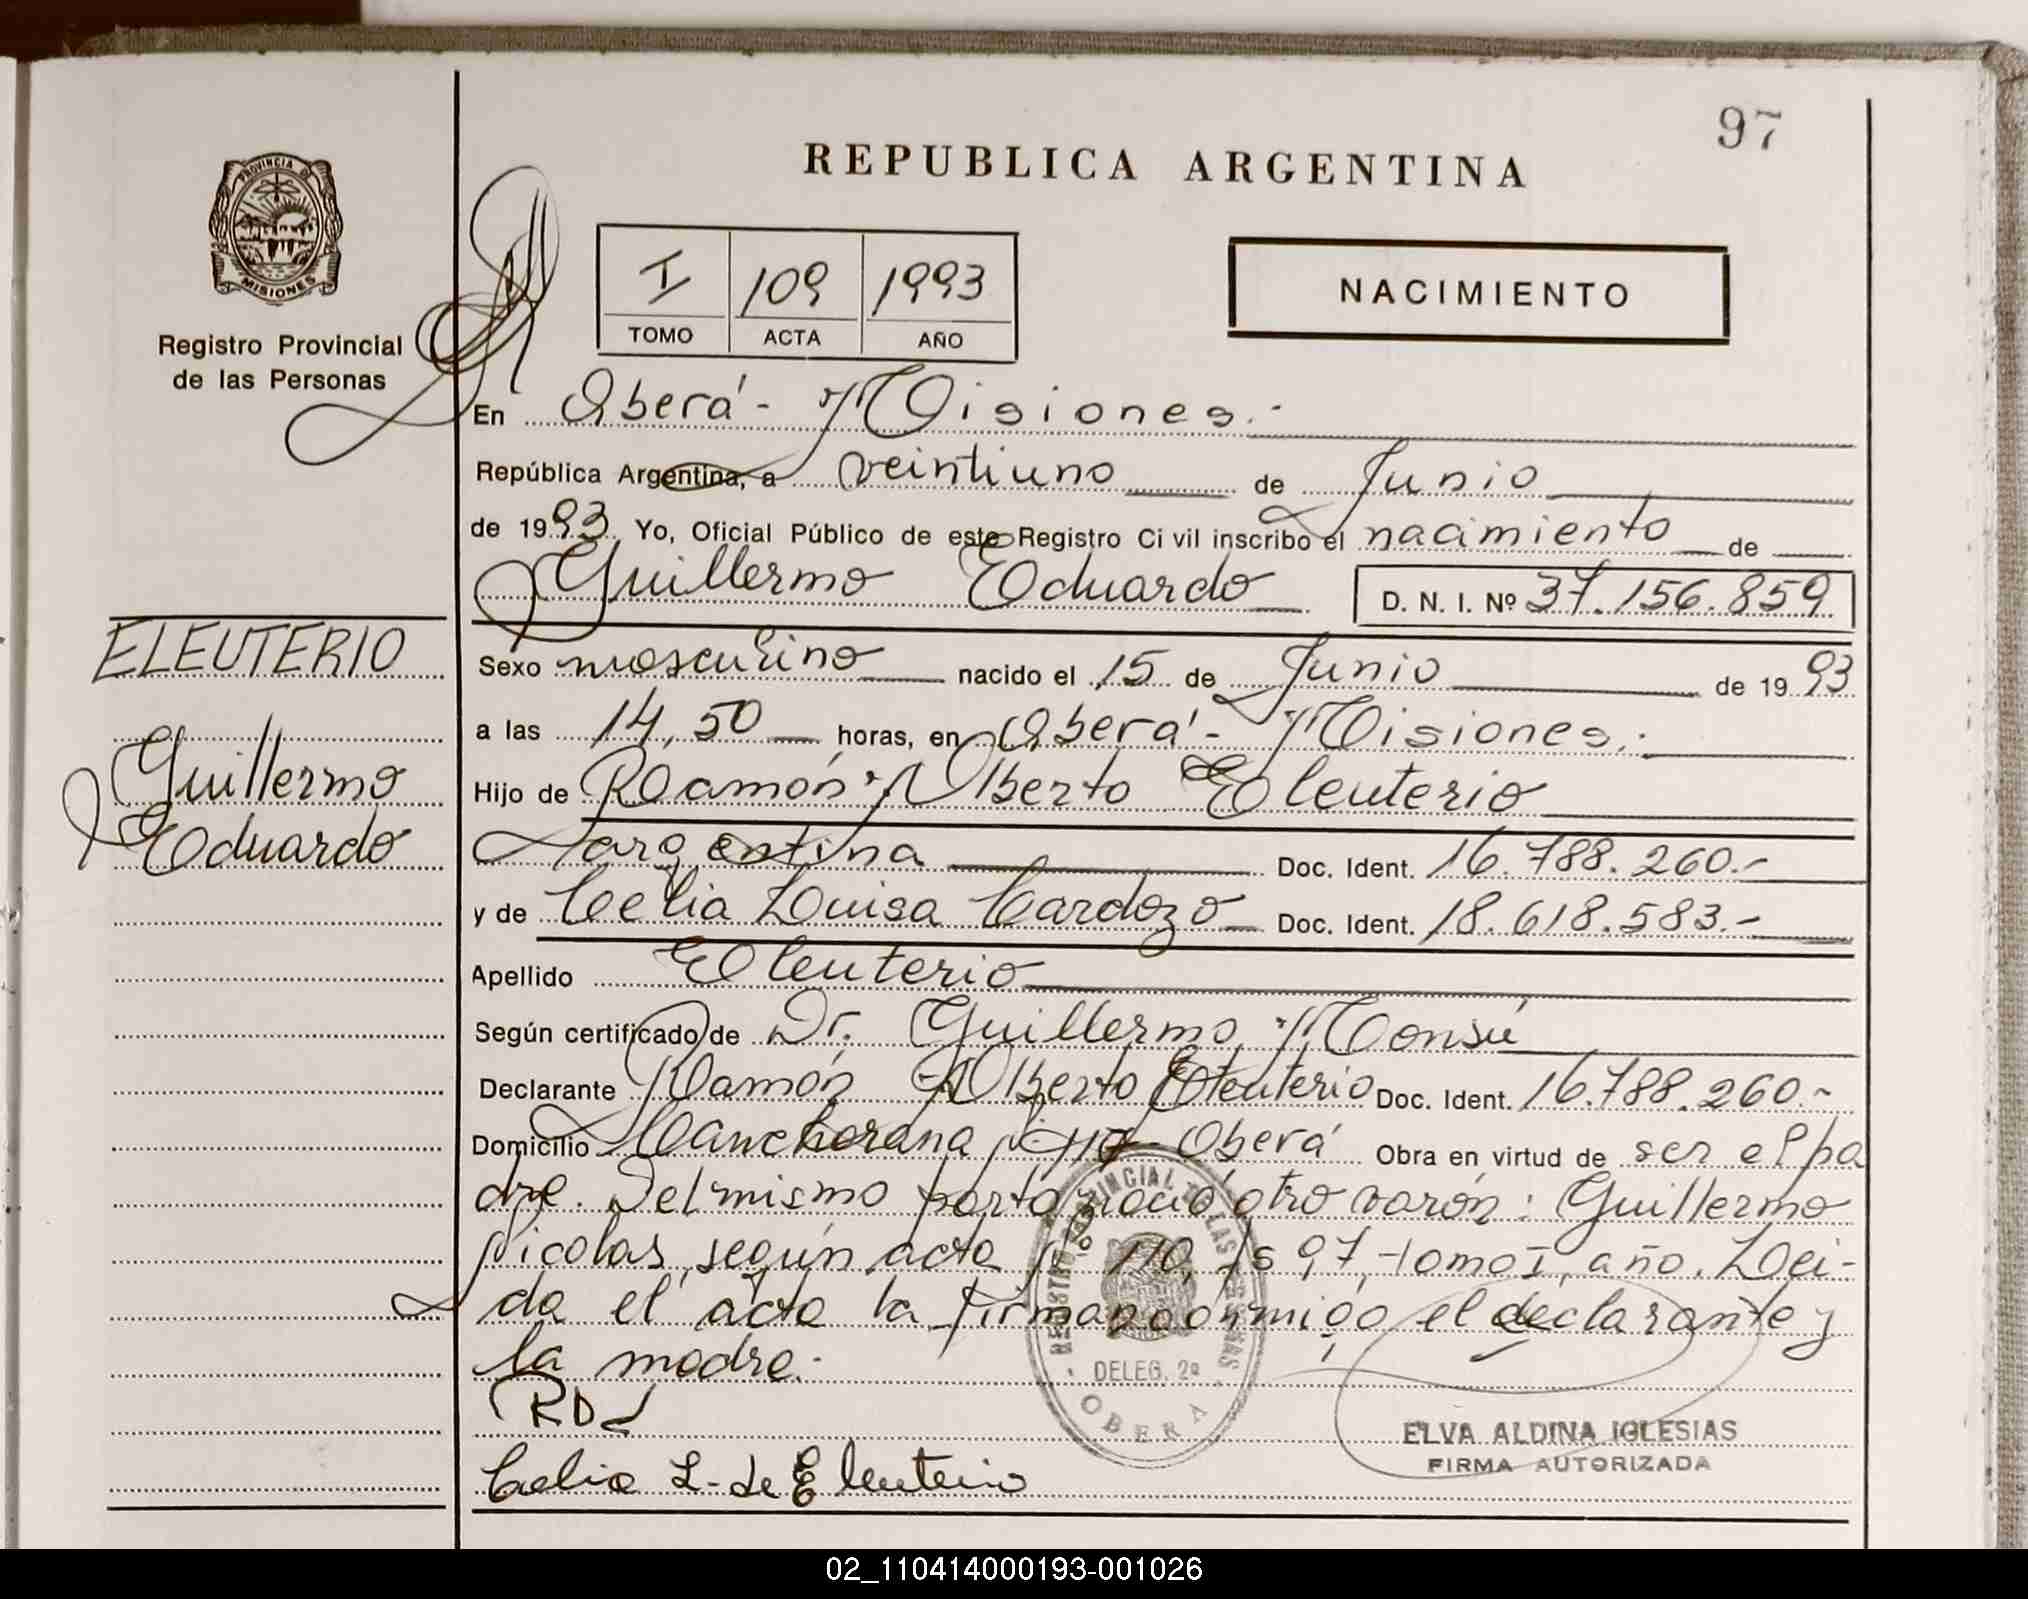 97
REPUBLICA ARGENTINA
PROVINCIA DE
MISIONES
Registro Provincial
de las Personas
I 109 1993
TOMO ACTA AÑO
NACIMIENTO
En Oberá - Misiones.-
República Argentina, a veintiuno de Junio
de 1993 Yo, Oficial Público de este Registro Civil inscribo el nacimiento de
Guillermo Eduardo D. N. I. Nº 37.156.859
ELEUTERIO
Guillermo
Eduardo
Sexo masculino nacido el 15 de Junio de 1993
a las 14,50 horas, en Oberá - Misiones.-
Hijo de Ramón Alberto Eleuterio
argentina Doc. Ident. 16.788.260.-
y de Celia Luisa Cardozo Doc. Ident. 18.618.583.-
Apellido Eleuterio
Según certificado de Dr. Guillermo Monsú
Declarante Ramón Alberto Eleuterio Doc. Ident. 16.788.260.-
Domicilio Oberá Obra en virtud de ser el pa
dre. Del mismo parto nació otro varón: Guillermo
Nicolas, según acta Nº 110, fs 97, tomo I, año. Leí-
da el acta la firman conmigo el declarante y
la madre.-
Celia L. de Eleuterio
REGISTRO PROVINCIAL DE LAS PERSONAS
DELEG. 2ª
OBERA
ELVA ALDINA IGLESIAS
FIRMA AUTORIZADA
02_110414000193-001026